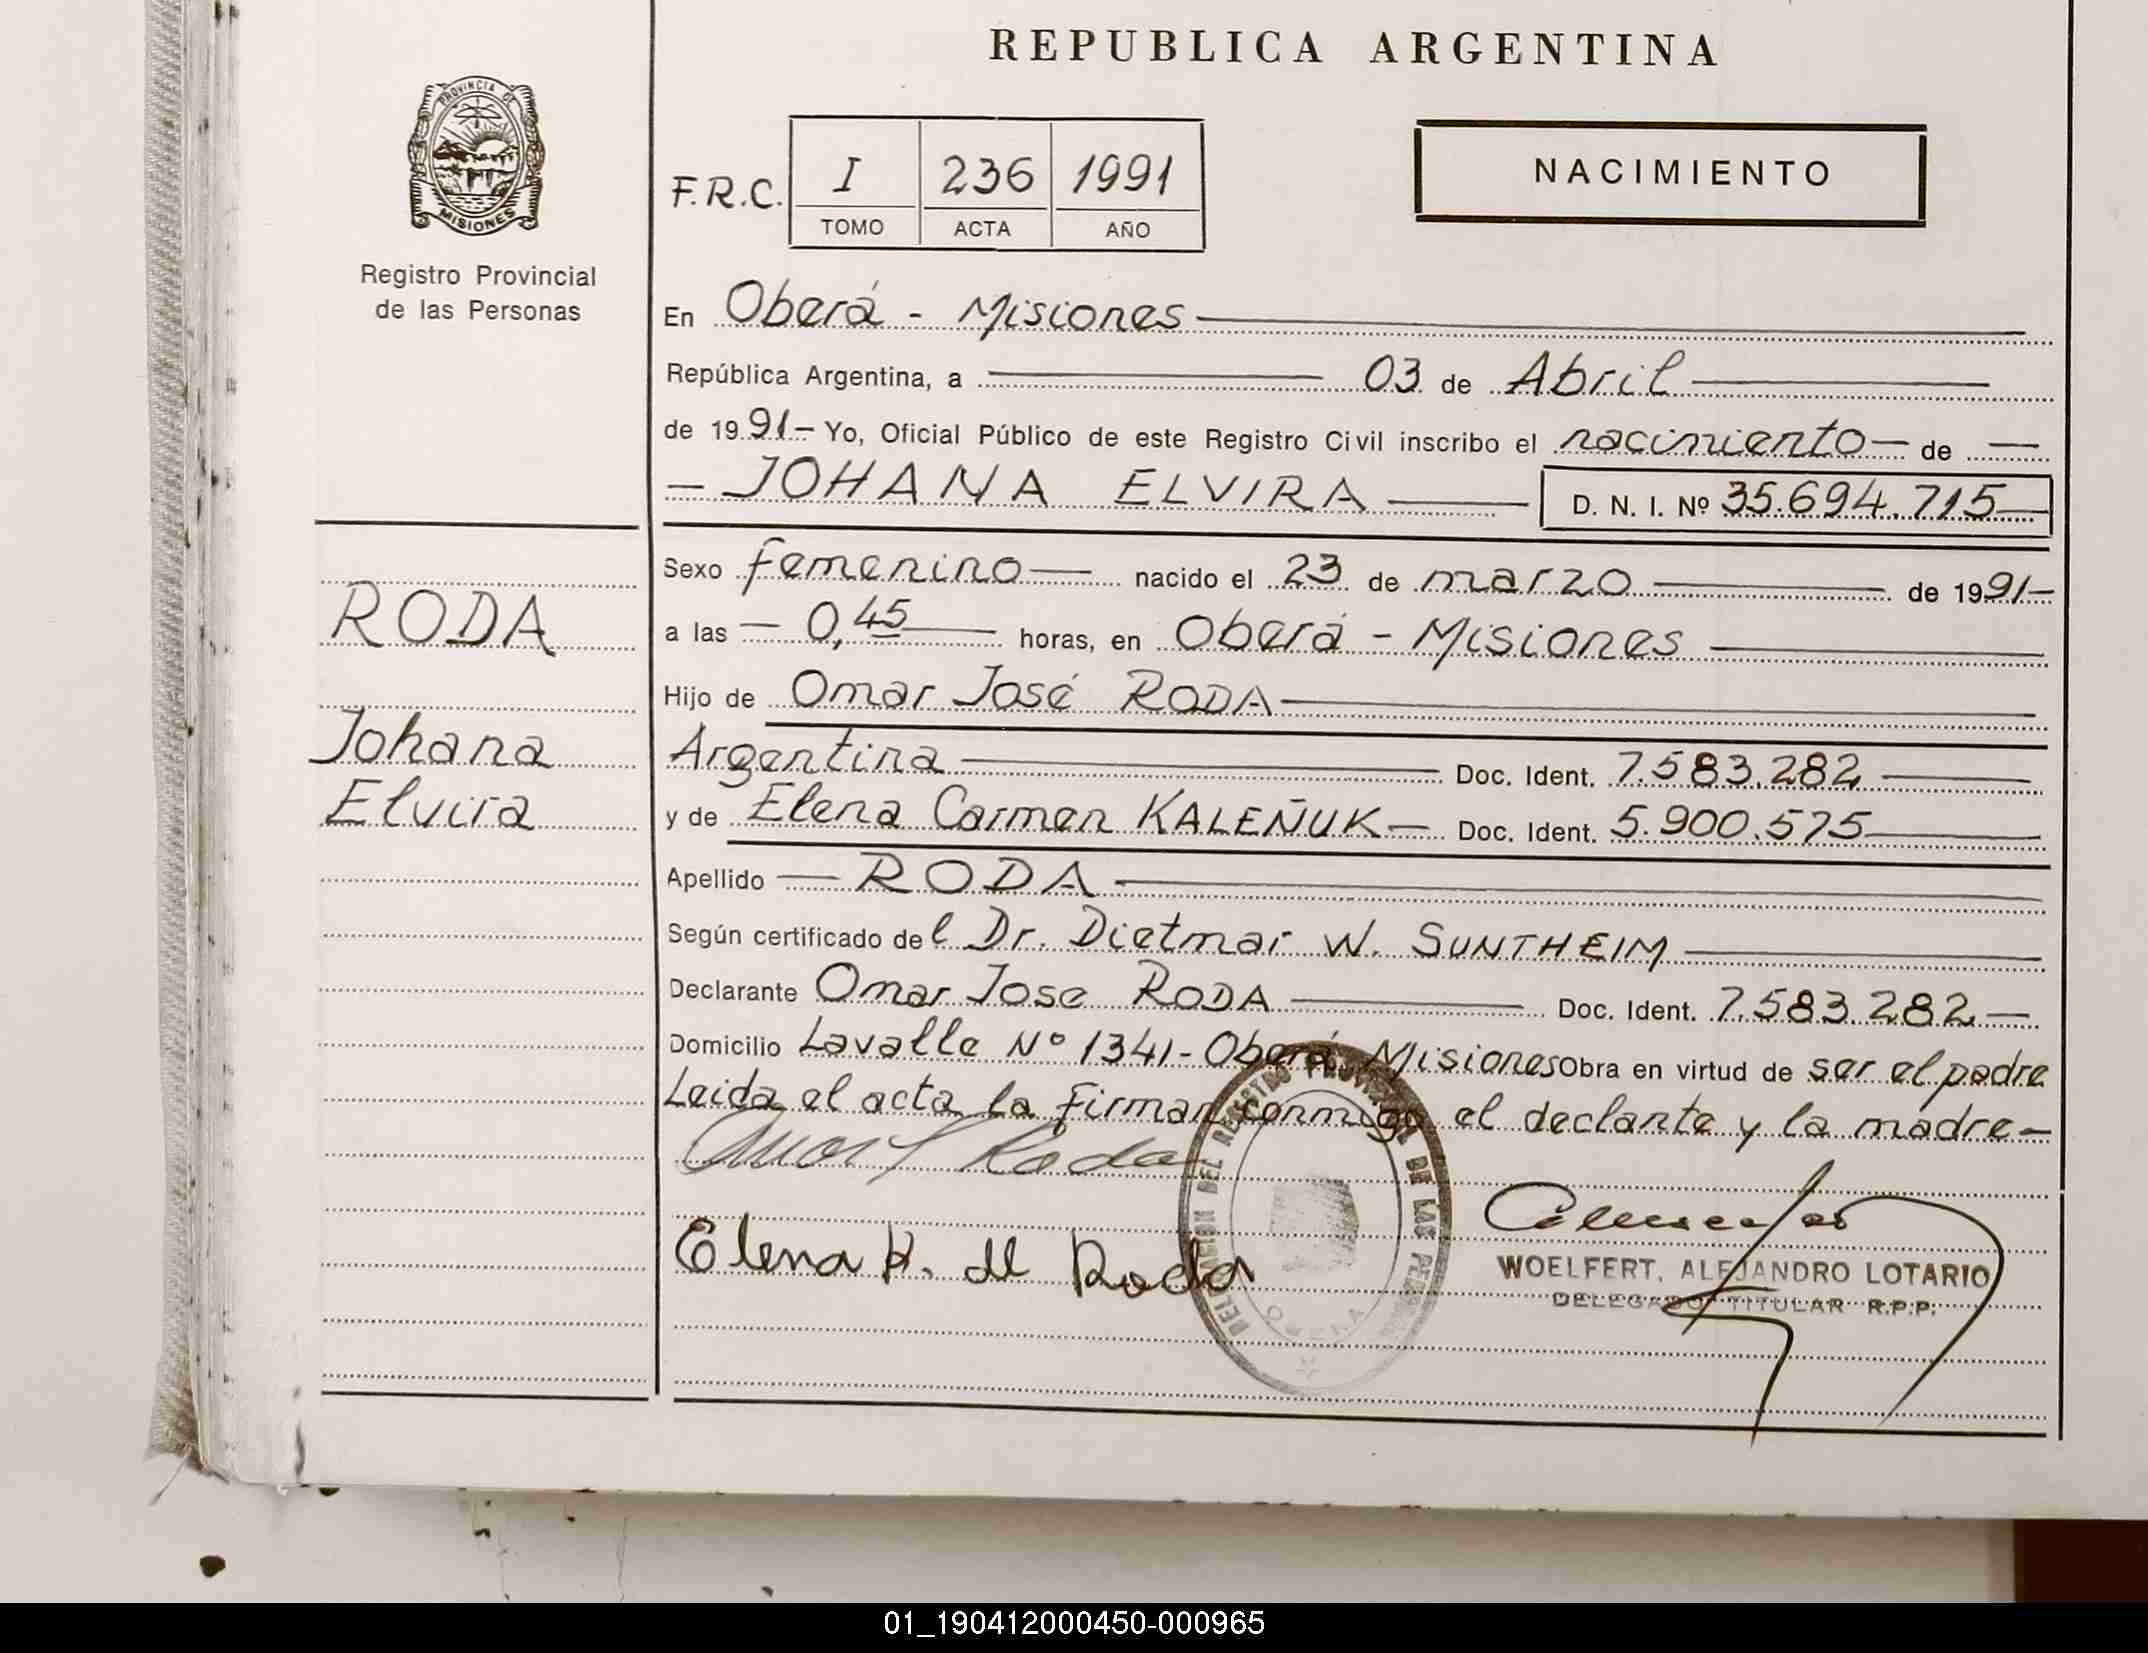 REPUBLICA ARGENTINA
PROVINCIA DE
MISIONES
Registro Provincial
de las Personas
F.R.C. I 236 1991
TOMO ACTA AÑO
NACIMIENTO
En Oberá - Misiones
República Argentina, a 03 de Abril
de 1991- Yo, Oficial Público de este Registro Civil inscribo el nacimiento - de
- JOHANA ELVIRA
D. N. I. Nº 35.694.715
RODA
Johana
Elvira
Sexo femenino nacido el 23 de marzo de 1991-
a las - 0,45 horas, en Oberá - Misiones
Hijo de Omar José RODA
Argentina Doc. Ident. 7.583.282
y de Elena Carmen KALEÑUK - Doc. Ident. 5.900.575
Apellido - RODA
Según certificado del Dr. Dietmar W. SUNTHEIM
Declarante Omar Jose RODA Doc. Ident. 7.583.282-
Domicilio Lavalle Nº 1341- Oberá Misiones Obra en virtud de ser el padre
Leida el acta la Firman conmigo el declante y la madre-
Roda
Elena K. de Roda
DEL REGISTRO PROVINCIAL DE LAS PERSONAS
WOELFERT, ALEJANDRO LOTARIO
DELEGADO TITULAR R.P.P.
01_190412000450-000965